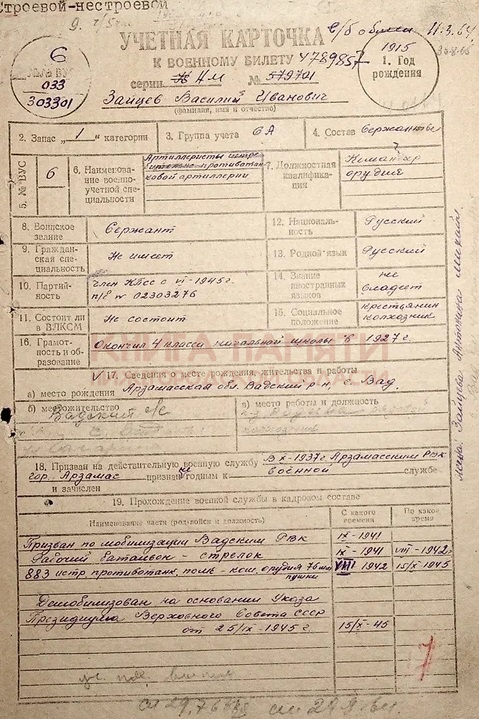 Строевой-нестроевой
УЧЕТНАЯ КАРТОЧКА
К ВОЕННОМУ БИЛЕТУ
серии НМ № 579701
4789857
6
№ ВУС
033
303301
1915
1. Год
рождения
Зайцев Василий Иванович
(фамилия, имя и отчество)
2. Запас „1" категории
3. Группа учета 6А
4. Состав Сержантск
5. № ВУС
6
6. Наименование военно-учетной специальности
Артиллеристы истребительно-противотанковой артиллерии
7. Должностная квалификация
Командир орудия
8. Воинское звание
Сержант
12. Национальность
Русский
9. Гражданская специальность
Не имеет
13. Родной язык
Русский
10. Партийность
Член КПСС с VI-1945г.
п/б № 02303276
14. Знание иностранных языков
не владеет
11. Состоит ли в ВЛКСМ
Не состоит
15. Социальное положение
крестьянин колхозник
16. Грамотность и образование
Окончил 4 класса начальной школы в 1927 г.
КНИГА ПАМЯТИ
17. Сведения о месте рождения, жительства и работы
а) место рождения Арзамасская обл. Вадский р-н, с. Вад.
б) местожительство
в) место работы и должность
18. Призван на действительную военную службу В X-1937г. Арзамасским РВК
гор. Арзамас признан годным к военной службе
и зачислен
19. Прохождение военной службы в кадровом составе
Наименование части (полка и должность)
С какого времени
По какое время
Призван по мобилизации Вадским РВК IX-1941
Рабочий батальон - стрелок IX-1941 VIII-1942
883 истр. противотанк. полк - ком. орудия 76 мм пушки VIII 1942 15/X-1945
Демобилизован на основании Указа
Президиума Верховного Совета СССР
от 25/IX-1945 г. 15/X-45
7
Зайцева Антонина